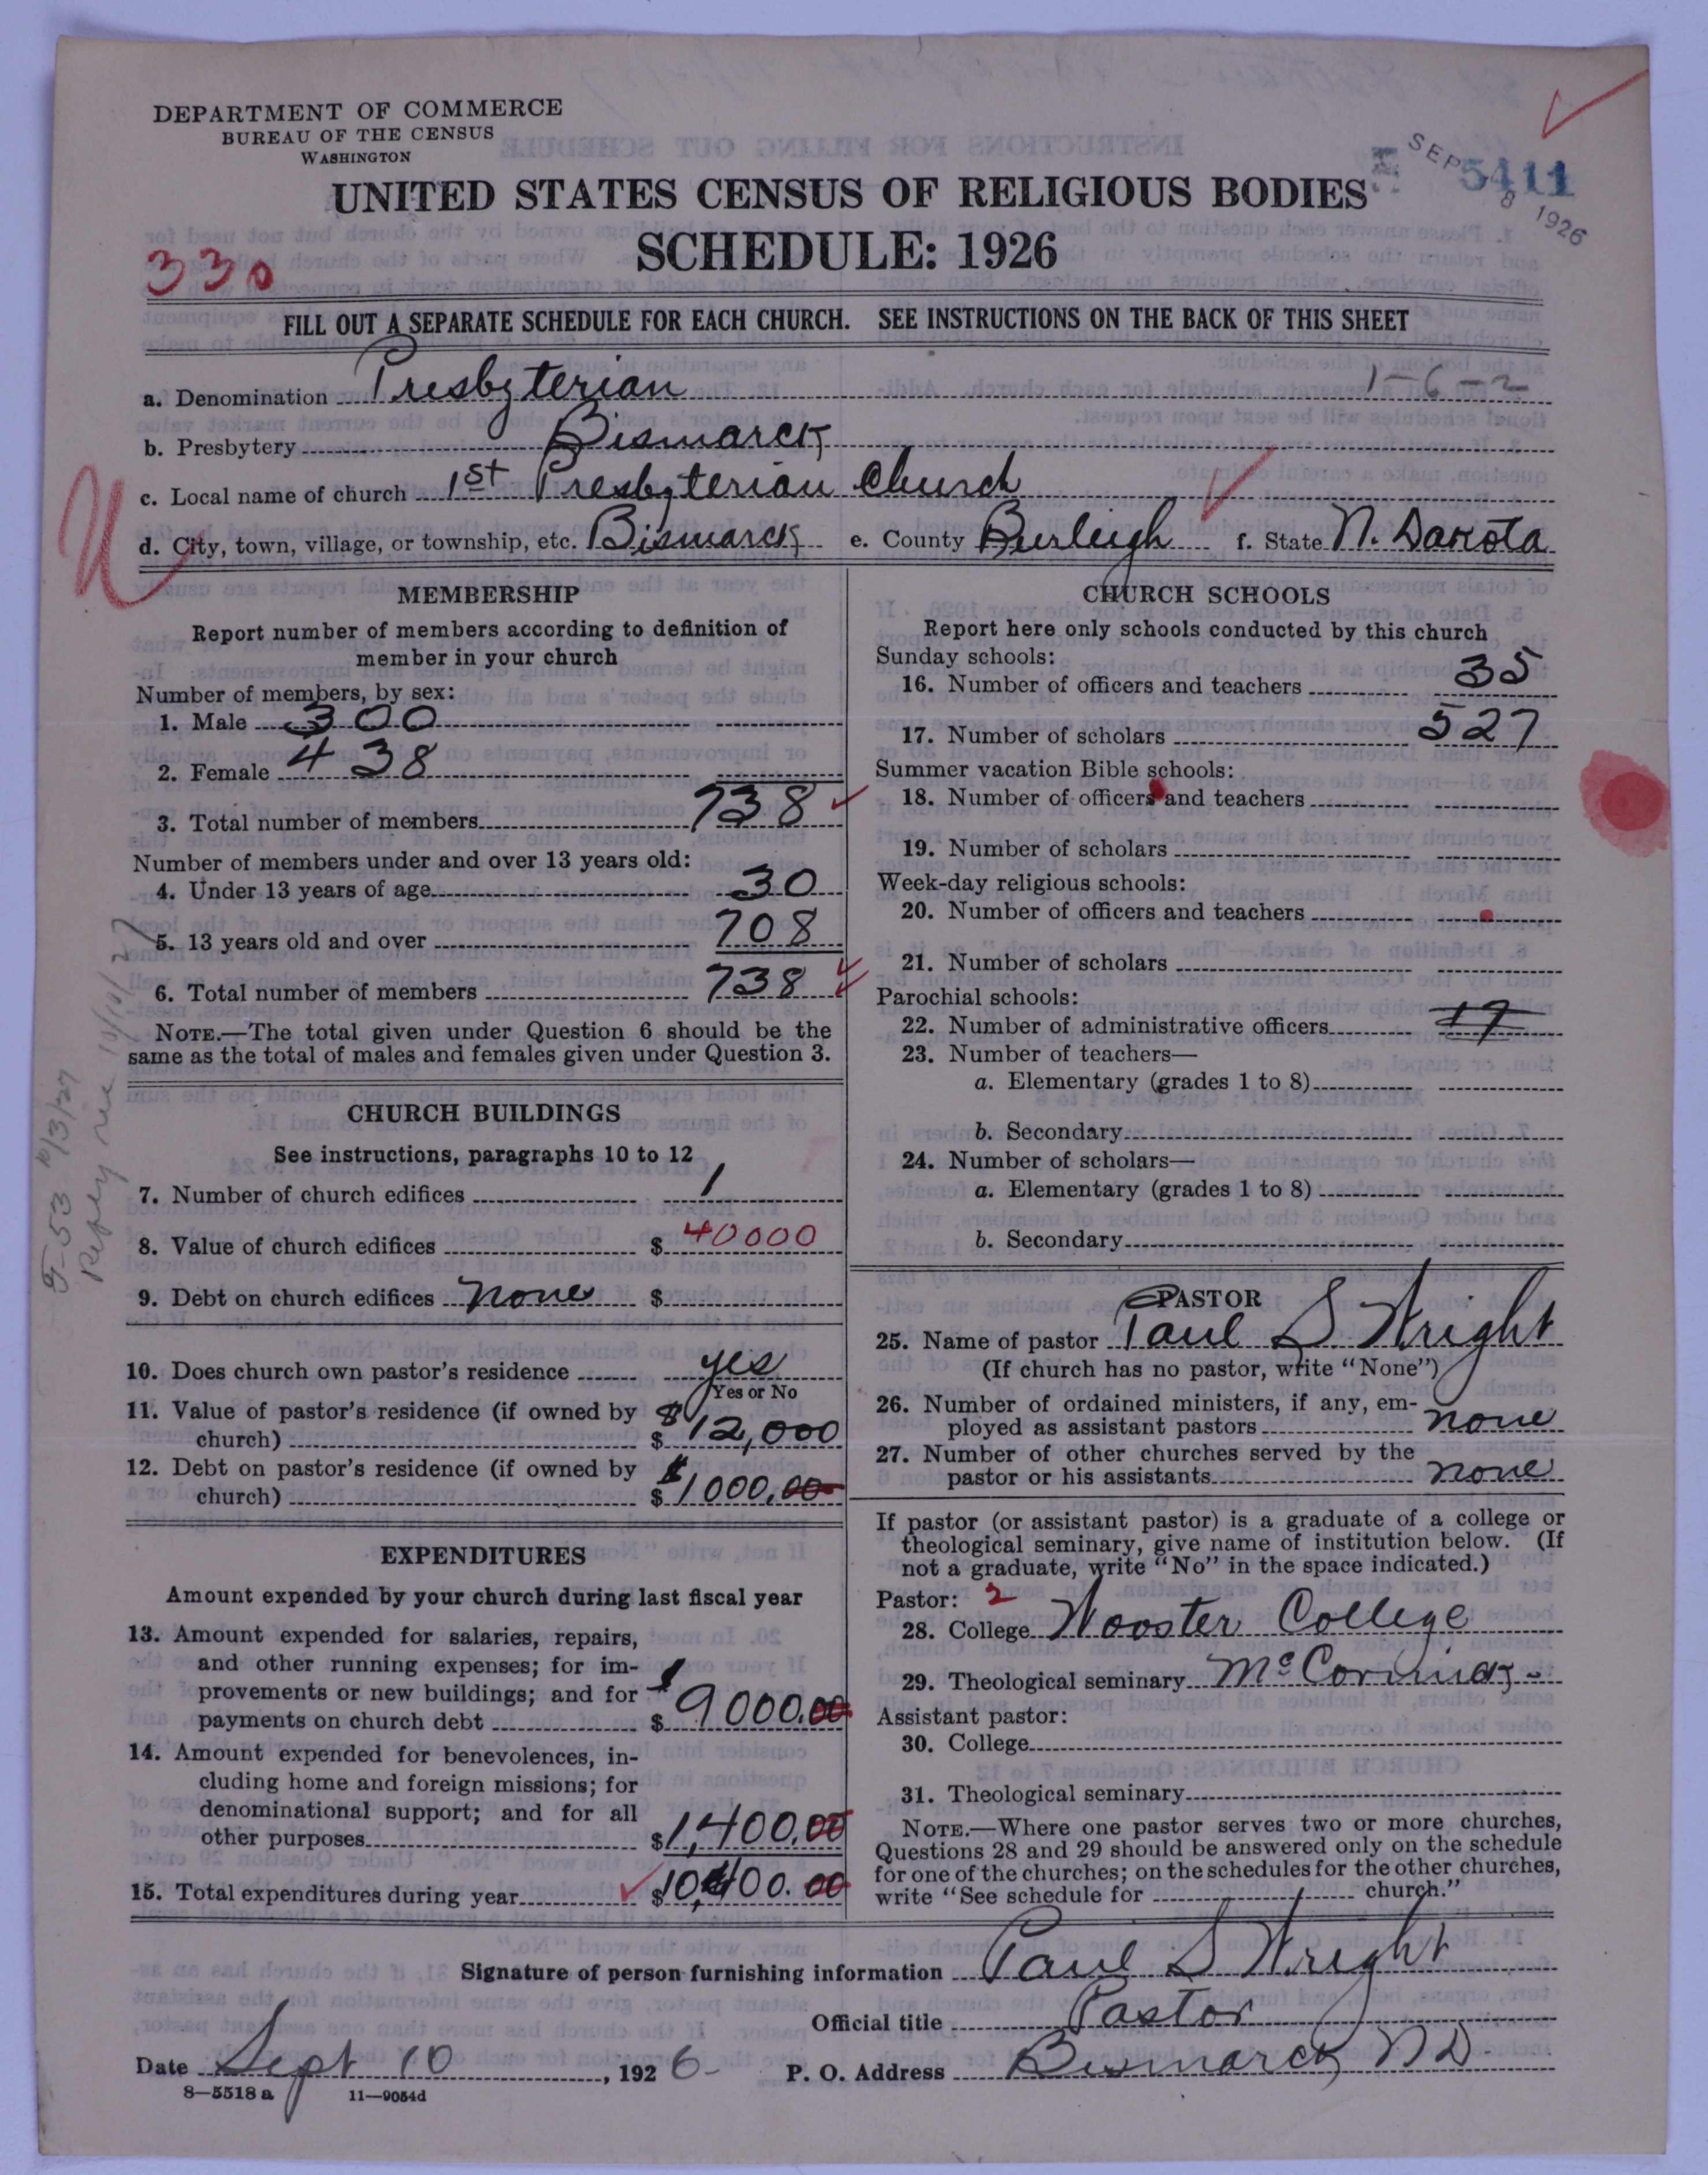 DEPARTMENT OF COMMERCE
BUREAU OF THE CENSUS
WASHINGTON
UNITED STATES CENSUS OF RELIGIOUS BODIES
SCHEDULE: 1926
SEP 8 1926
5411
330
FILL OUT A SEPARATE SCHEDULE FOR EACH CHURCH. SEE INSTRUCTIONS ON THE BACK OF THIS SHEET
a. Denomination Presbyterian 1-6-2
b. Presbytery Bismarck
c. Local name of church 1st Presbyterian Church
d. City, town, village, or township, etc. Bismarck e. County Burleigh f. State N. Dakota
MEMBERSHIP
Report number of members according to definition of
member in your church
Number of members, by sex:
1. Male 300
2. Female 438
3. Total number of members 738
Number of members under and over 13 years old:
4. Under 13 years of age 30
5. 13 years old and over 708
6. Total number of members 738
NOTE.—The total given under Question 6 should be the
same as the total of males and females given under Question 3.
CHURCH BUILDINGS
See instructions, paragraphs 10 to 12
7. Number of church edifices 1
8. Value of church edifices $ 40000
9. Debt on church edifices none $
10. Does church own pastor's residence yes
Yes or No
11. Value of pastor's residence (if owned by
church) $ $12,000
12. Debt on pastor's residence (if owned by
church) $ $1000.00
EXPENDITURES
Amount expended by your church during last fiscal year
13. Amount expended for salaries, repairs,
and other running expenses; for im-
provements or new buildings; and for
payments on church debt $ 9000.00
14. Amount expended for benevolences, in-
cluding home and foreign missions; for
denominational support; and for all
other purposes $ 1,400.00
15. Total expenditures during year $ 10,400.00
CHURCH SCHOOLS
Report here only schools conducted by this church
Sunday schools:
16. Number of officers and teachers 35
17. Number of scholars 527
Summer vacation Bible schools:
18. Number of officers and teachers
19. Number of scholars
Week-day religious schools:
20. Number of officers and teachers
21. Number of scholars
Parochial schools:
22. Number of administrative officers 17
23. Number of teachers—
a. Elementary (grades 1 to 8)
b. Secondary
24. Number of scholars—
a. Elementary (grades 1 to 8)
b. Secondary
PASTOR
25. Name of pastor Paul S. Wright
(If church has no pastor, write "None")
26. Number of ordained ministers, if any, em-
ployed as assistant pastors none
27. Number of other churches served by the
pastor or his assistants none
If pastor (or assistant pastor) is a graduate of a college or
theological seminary, give name of institution below. (If
not a graduate, write "No" in the space indicated.)
Pastor: 2
28. College Wooster College
29. Theological seminary McCormick
Assistant pastor:
30. College
31. Theological seminary
NOTE.—Where one pastor serves two or more churches,
Questions 28 and 29 should be answered only on the schedule
for one of the churches; on the schedules for the other churches,
write "See schedule for church."
Signature of person furnishing information Paul S Wright
Official title Pastor
Date Sept 10, 1926 P. O. Address Bismarck ND
8—5518 a 11—9054d
5-53 10/3/27